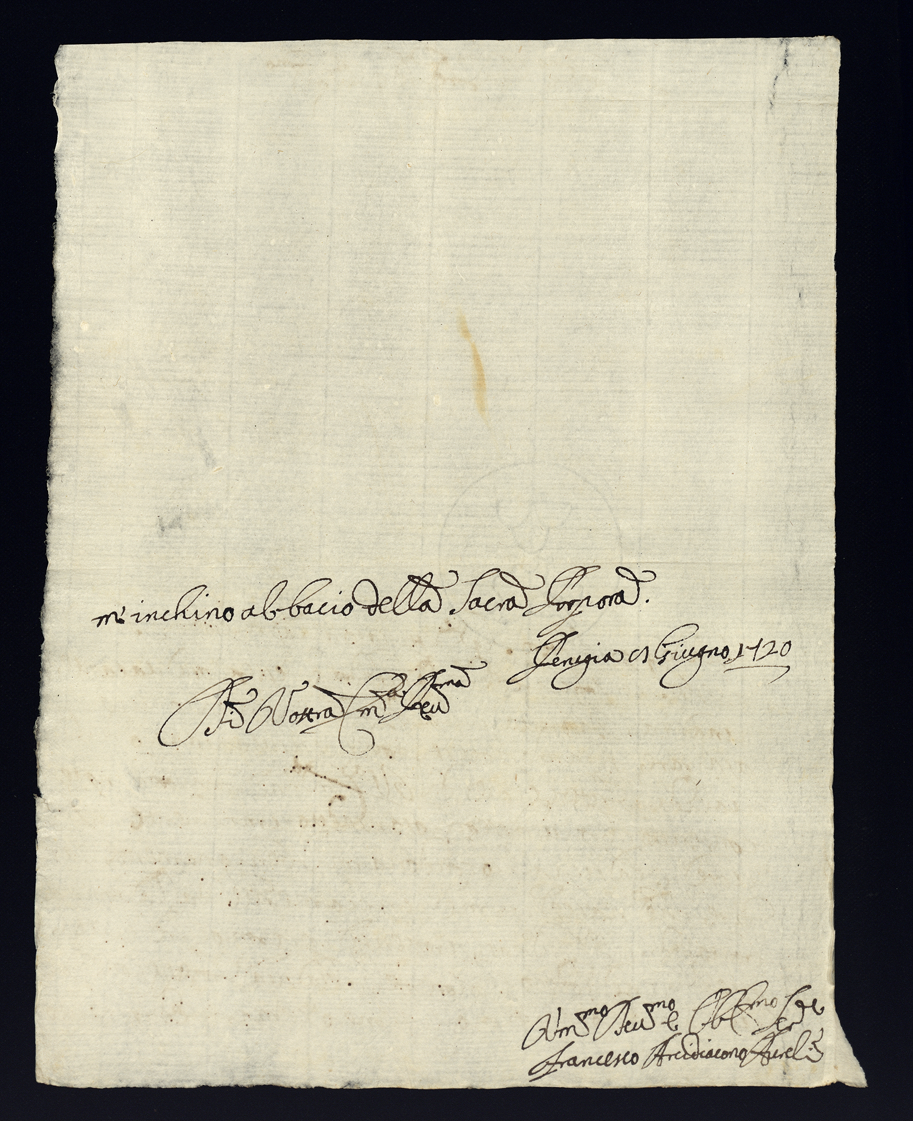 m'inchino al bacio della Sacra Porpora.
Venezia Giugno 1720
Di Vostra Em:za Rev:ma
Um:mo Dev:mo e Obb:mo Ser:re
Francesco Arcidiacono